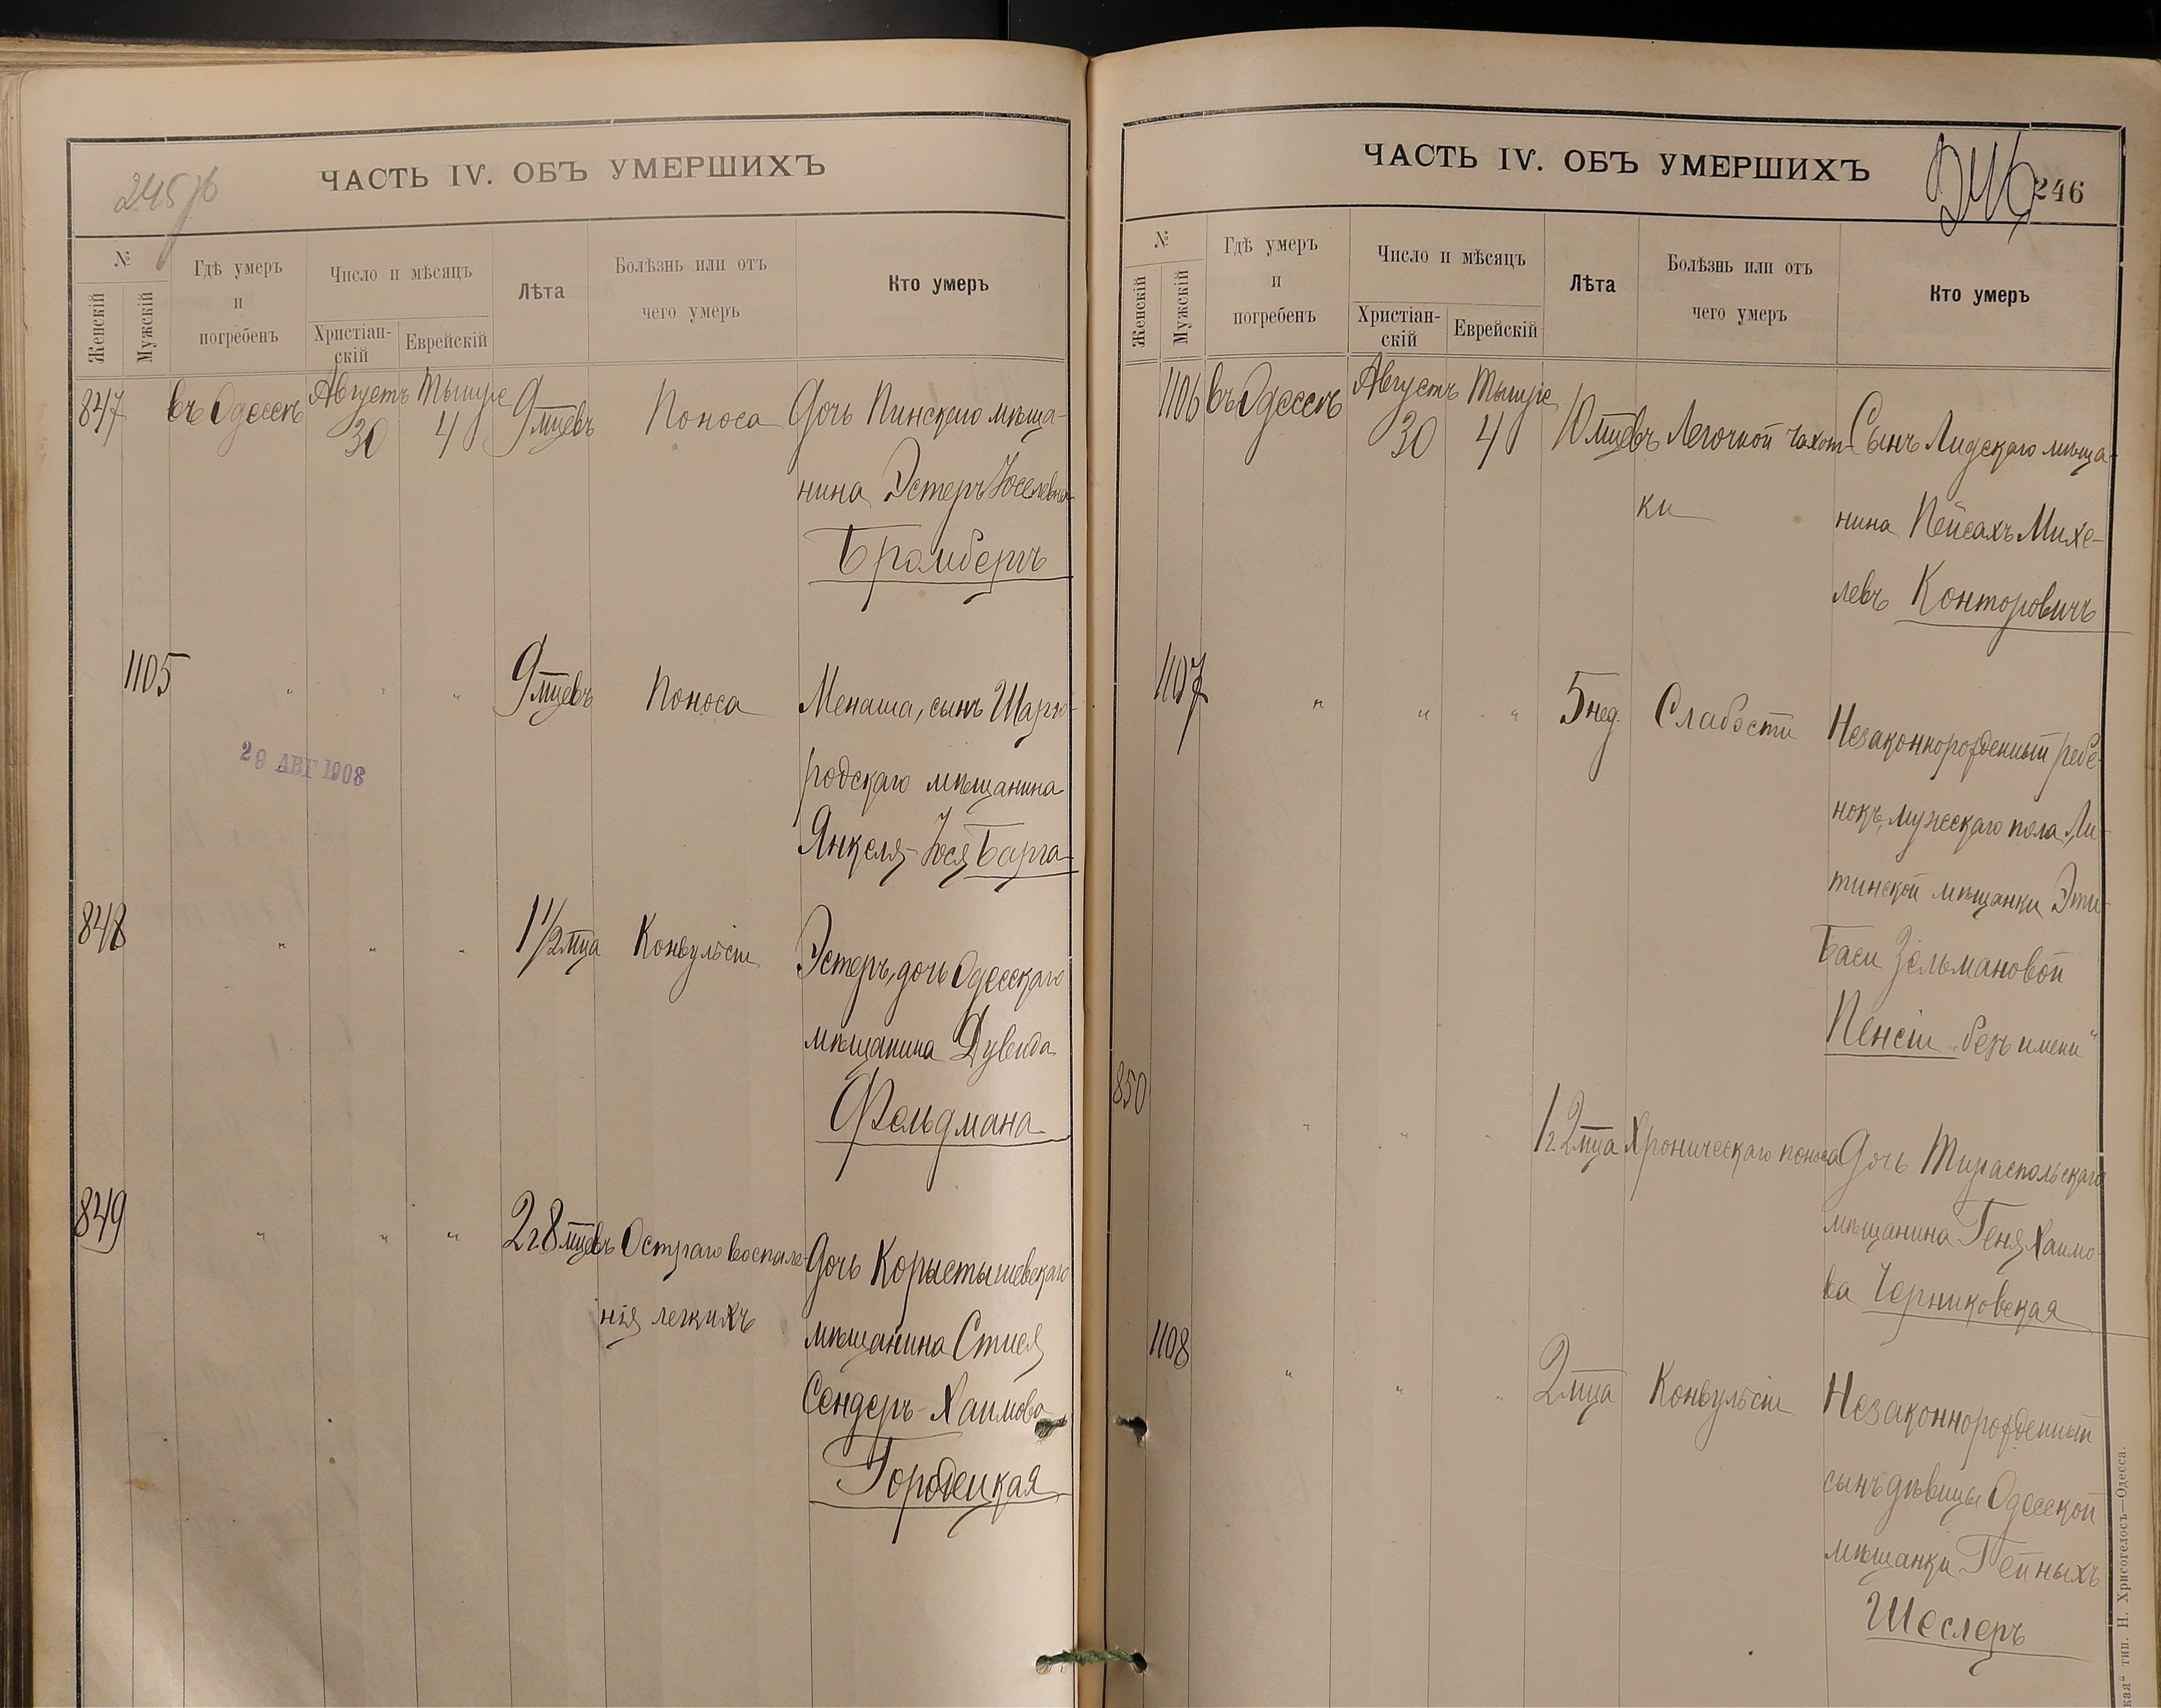 245 об
ЧАСТЬ IV. ОБЪ УМЕРШИХЪ
№
Женскій
Мужскій
Гдѣ умеръ
и
погребенъ
Число и мѣсяцъ
Христіан-
скій
Еврейскій
Лѣта
Болѣзнь или отъ
чего умеръ
Кто умеръ
847 въ Одессѣ Августъ 30 Тышре 4 9 мцевъ Поноса Дочь Пинскаго мѣща-
нина Эстеръ Іоселевна
Бромбергъ
1105 " " " 9 мцевъ Поноса Менаша, сынъ Шарго-
родскаго мѣщанина
Янкеля-Іося Барга
29 АВГ 1908
848 " " " 1 1/2 мца Конвульсіи Эстеръ, дочь Одесскаго
мѣщанина Дувида
Фельдмана
849 " " " 2 г. 8 мцевъ Остраго воспале- Дочь Коростышевскаго
нія легкихъ мѣщанина Стися
Сендеръ-Хаимова
Городецкая
ЧАСТЬ IV. ОБЪ УМЕРШИХЪ
246
246
№
Женскій
Мужскій
Гдѣ умеръ
и
погребенъ
Число и мѣсяцъ
Христіан-
скій
Еврейскій
Лѣта
Болѣзнь или отъ
чего умеръ
Кто умеръ
1106 въ Одессѣ Августъ 30 Тышре 4 10 мцевъ Легочной чахот- Сынъ Лидскаго мѣща-
ки нина Пейсахъ Михе-
левъ Конторовичъ
1107 " " " 5 нед. Слабости Незаконнорожденный ребе-
нокъ, мужескаго пола, Ли-
тинской мѣщанки Эти-
Баси Зельмановой
Пенсіи "безъ имени"
850 " " " 1 г. 2 мца Хроническаго поноса Дочь Тираспольскаго
мѣщанина Геня Хаимо-
ва Черниковская
1108 " " " 2 мца Конвульсіи Незаконнорожденный
сынъ дѣвицы Одесской
мѣщанки Гейныхъ
Шеслеръ
тип. Н. Хрисогелосъ—Одесса.